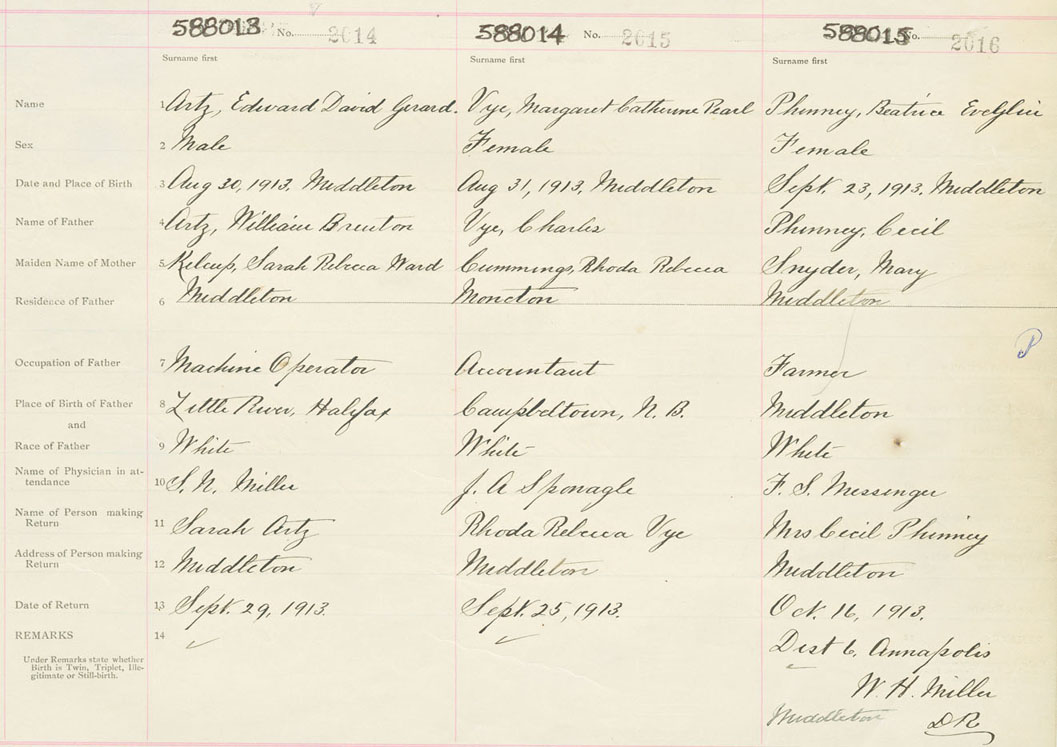 588013 No. 2014 588014 No. 2015 588015 No. 2016
Surname first Surname first Surname first
Name 1 Artz, Edward David Gerard. Vye, Margaret Catherine Pearl Phinney, Beatrice Evelyn
Sex 2 Male Female Female
Date and Place of Birth 3 Aug 30, 1913. Middleton Aug 31, 1913, Middleton Sept. 23, 1913. Middleton
Name of Father 4 Artz, William Brenton Vye, Charles Phinney, Cecil
Maiden Name of Mother 5 Kelcup, Sarah Rebecca Ward Cummings, Rhoda Rebecca Snyder, Mary
Residence of Father 6 Middleton Moncton Middleton
Occupation of Father 7 Machine Operator Accountant Farmer
Place of Birth of Father 8 Little River, Halifax Campbeltown, N. B. Middleton
and
Race of Father 9 White White White
Name of Physician in at-
tendance 10 S. N. Miller J. A Sponagle F. S. Messenger
Name of Person making
Return 11 Sarah Artz Rhoda Rebecca Vye Mrs Cecil Phinney
Address of Person making
Return 12 Middleton Middleton Middleton
Date of Return 13 Sept. 29, 1913. Sept. 25, 1913. Oct. 16, 1913.
REMARKS 14
Under Remarks state whether
Birth is Twin, Triplet, Ille-
gitimate or Still-birth.
Dist 6, Annapolis
W. H. Miller
Middleton DR